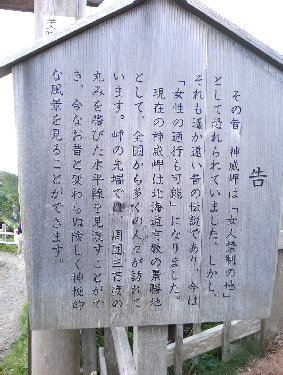 告
その昔、神威岬は「女人禁制の地」
として恐れられていました。しかし、
それも遙か遠い昔の伝説であり、今は
「女性の通行も可能」になりました。
現在の神威岬は北海道有数の景勝地
として、全国から多くの人々が訪れて
います。岬の先端では、周囲三百度の
丸みを帯びた水平線を見渡すことがで
き、今なお昔と変わらぬ険しく、神秘的
な風景を見ることができます。